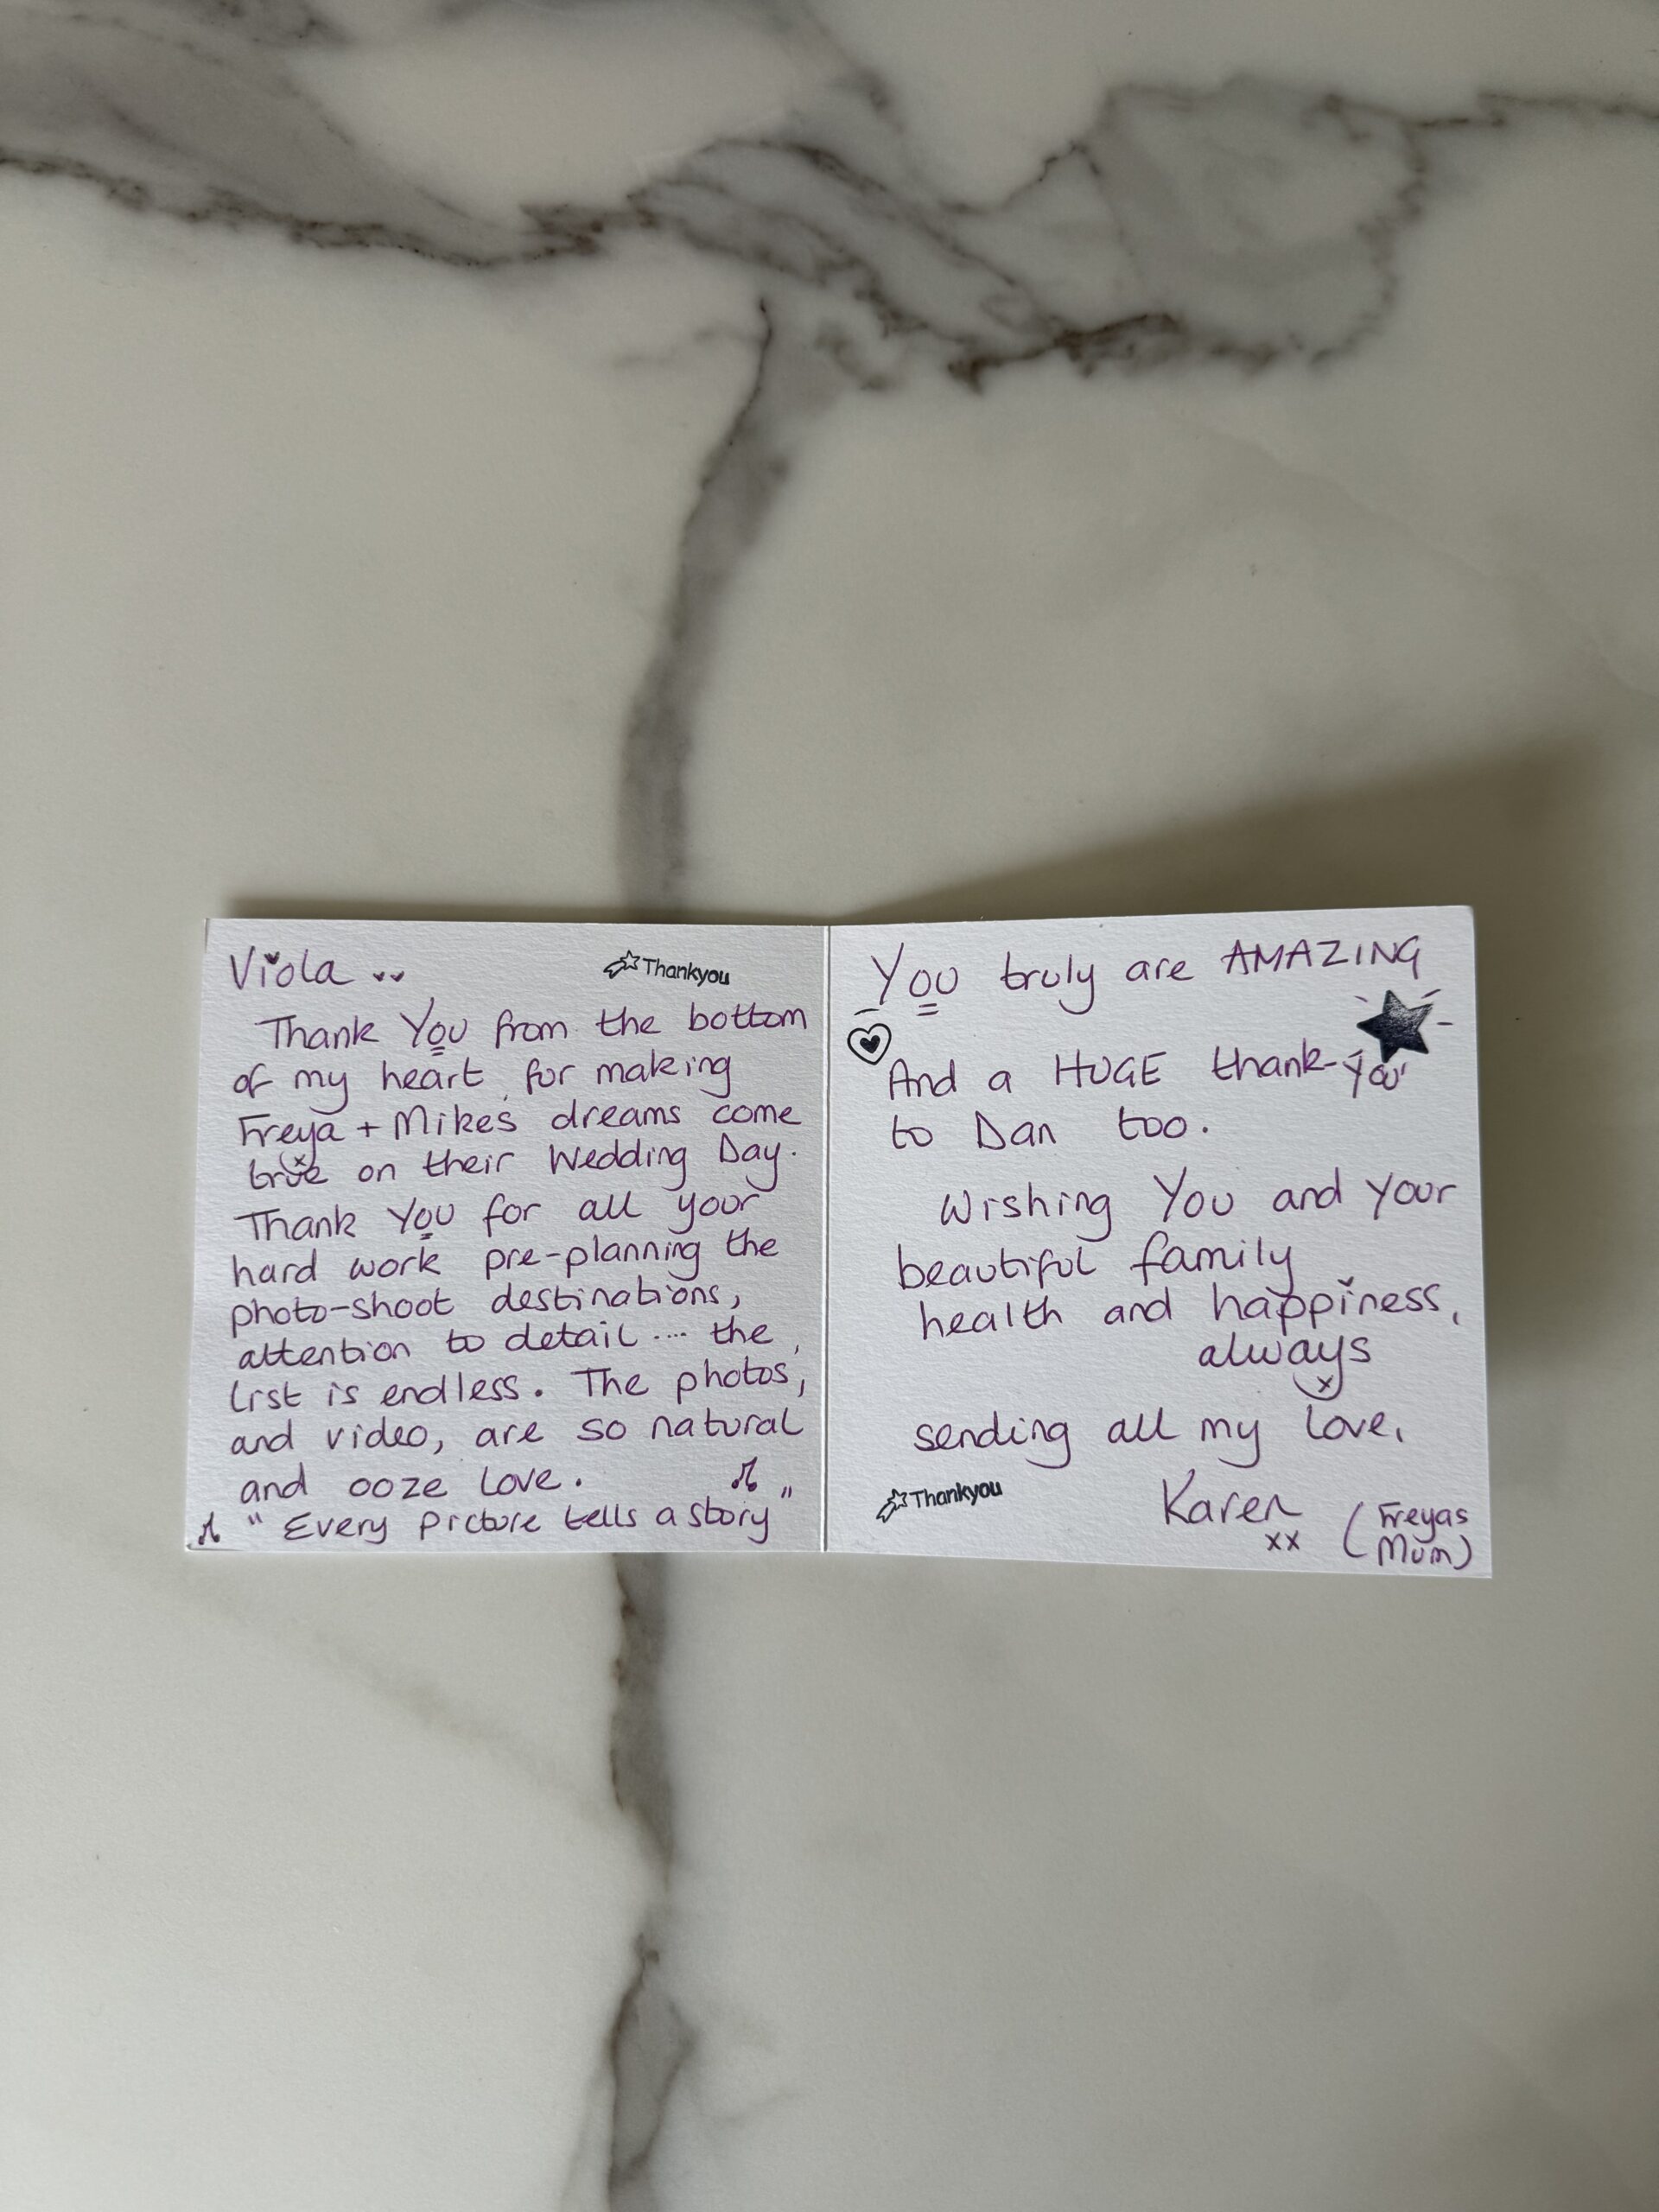 Viola
Thankyou
Thank You from the bottom
of my heart, for making
Freya + Mike's dreams come
true on their Wedding Day.
Thank You for all your
hard work pre-planning the
photo-shoot destinations,
attention to detail .... the
list is endless. The photos,
and video, are so natural
and ooze love.
"Every picture tells a story"
You truly are AMAZING
And a HUGE thank-you
to Dan too.
Wishing You and your
beautiful family
health and happiness,
always
x
sending all my love,
Thankyou
Karen
xx
(Freyas
Mum)